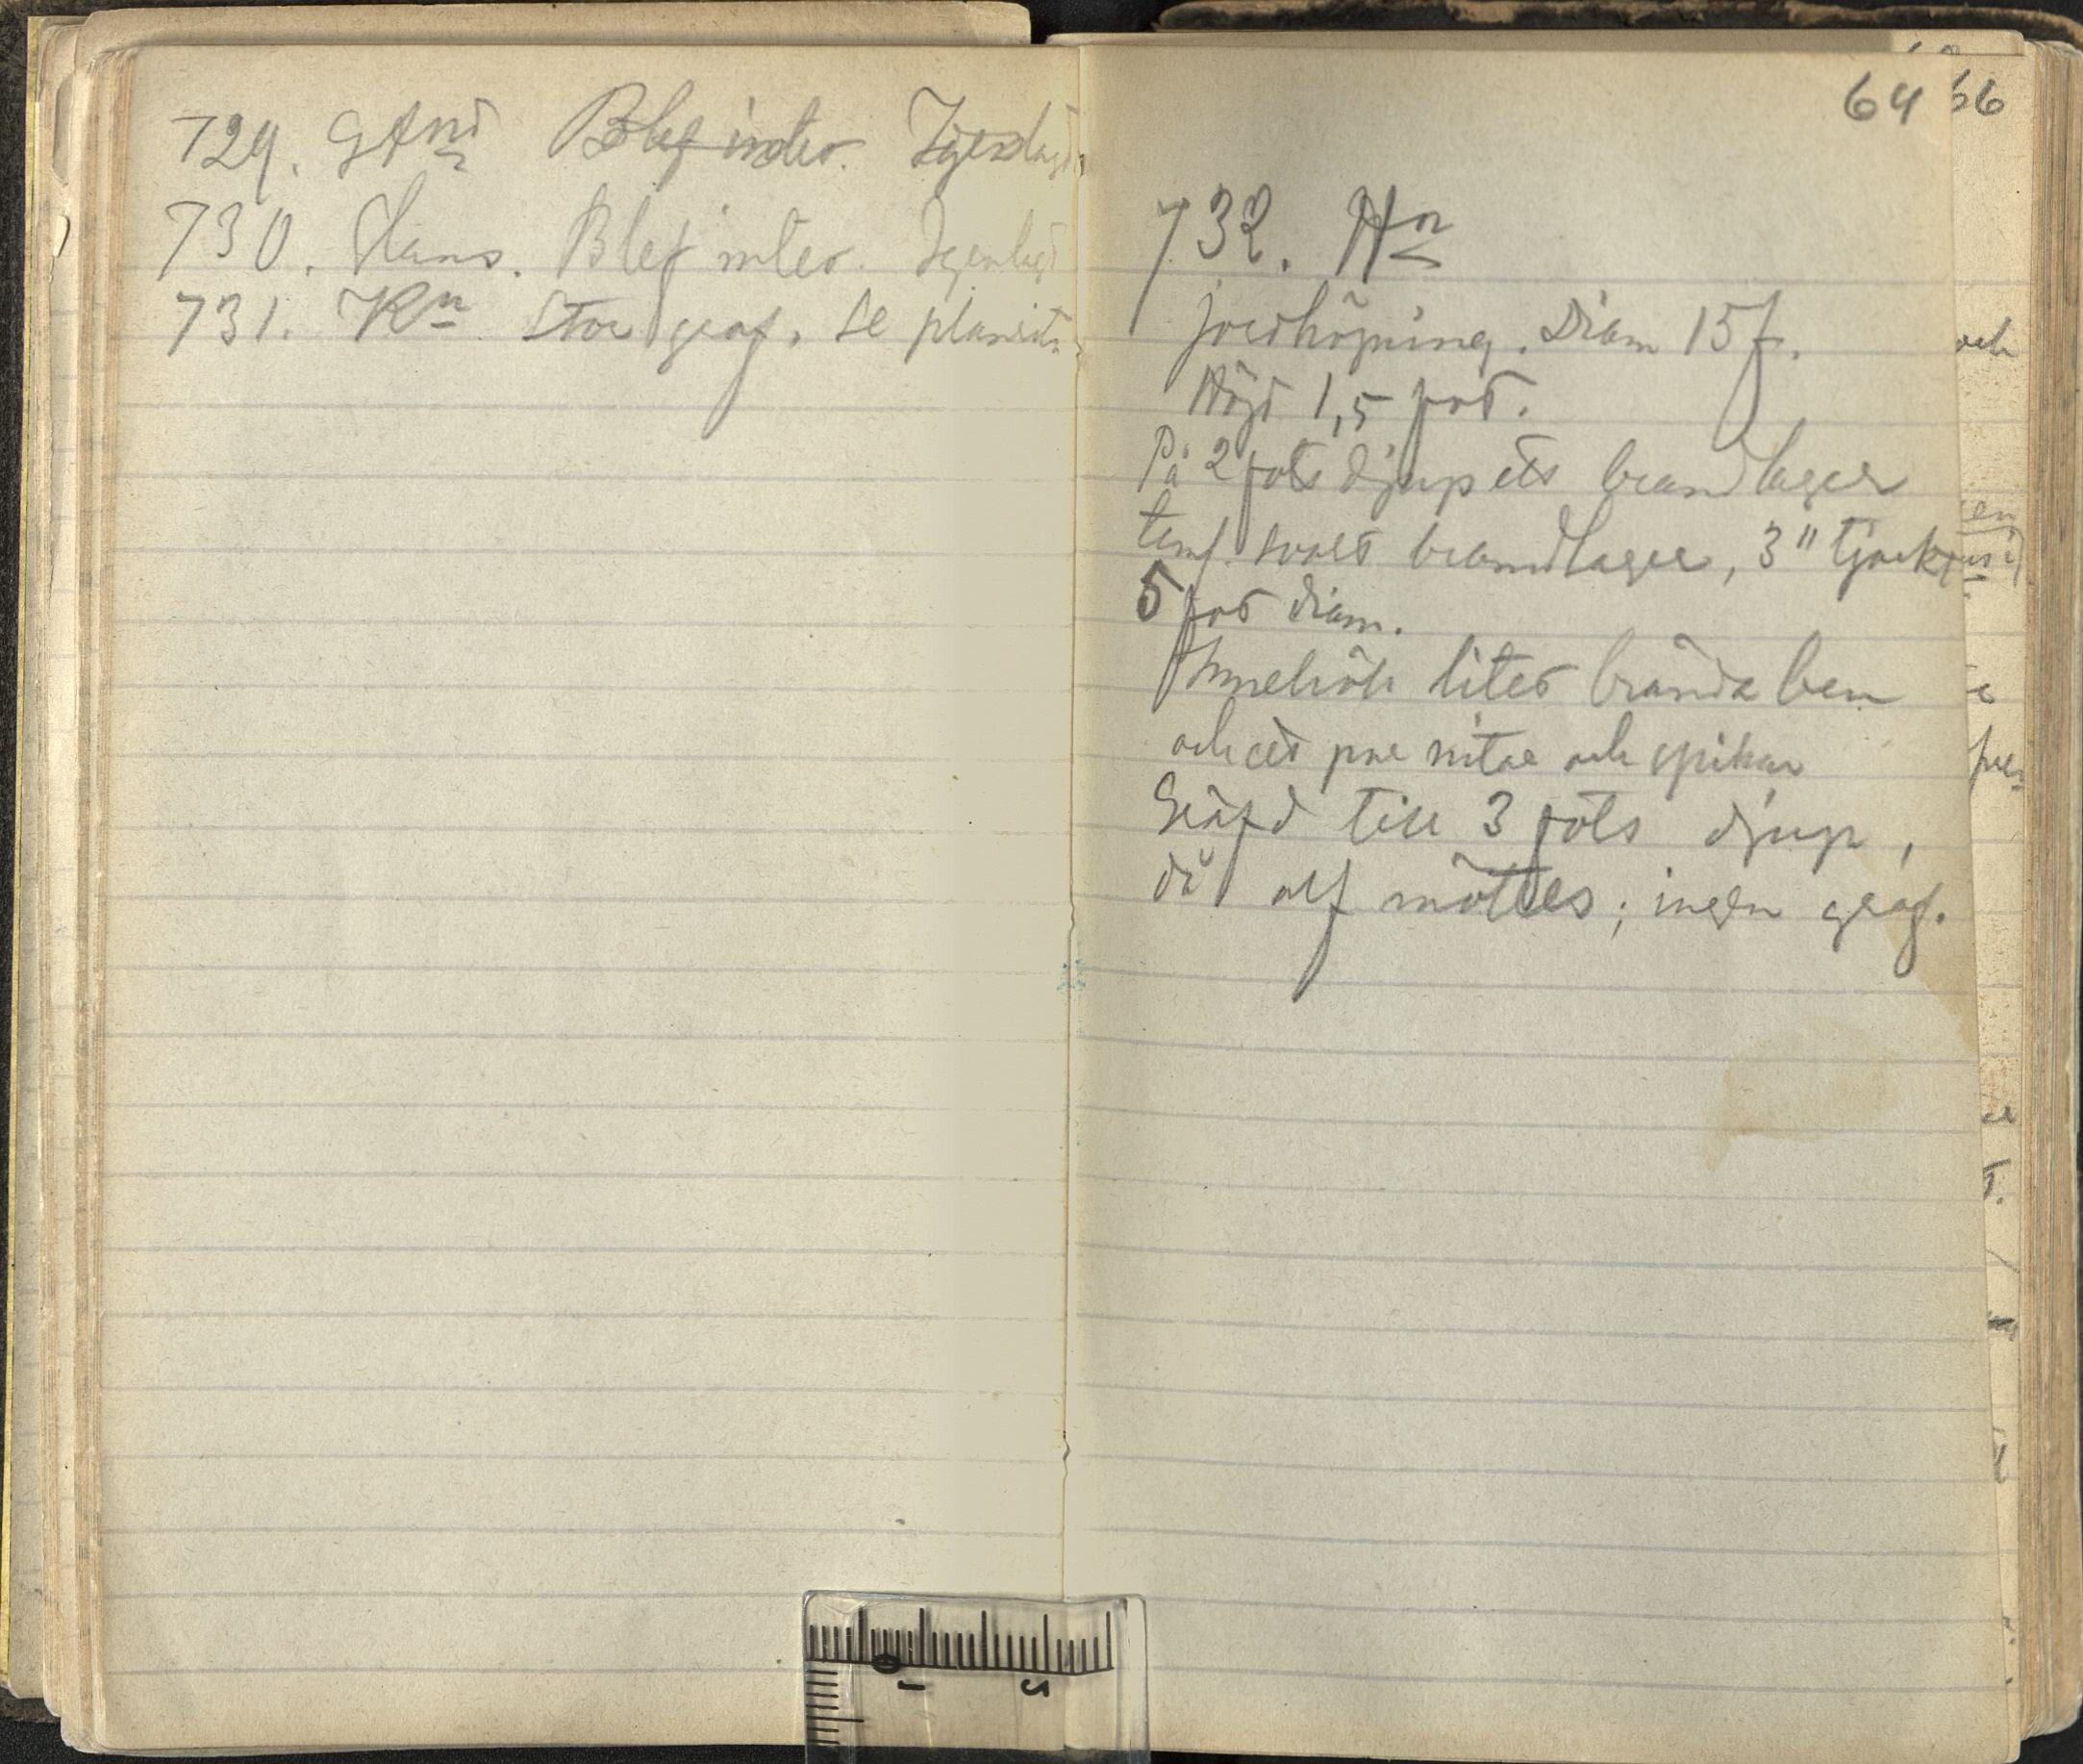 729. GAnd Blef inter. Igenlagd
730. Hans. Blef inter. Igenlagd
731. Kn Stor graf. Se planrit
64
66
732. Hn
jordhöpning. Diam 15 f.
Höjd 1,5 fot.
På 2 fots djup ett brandlager
svart brandlager, 3" tjockt
5 fot diam.
Innehöll litet brända ben
och ett par nitar och spikar
Gräfd till 3 fots djup,
då alf möttes; ingen graf.
och
en